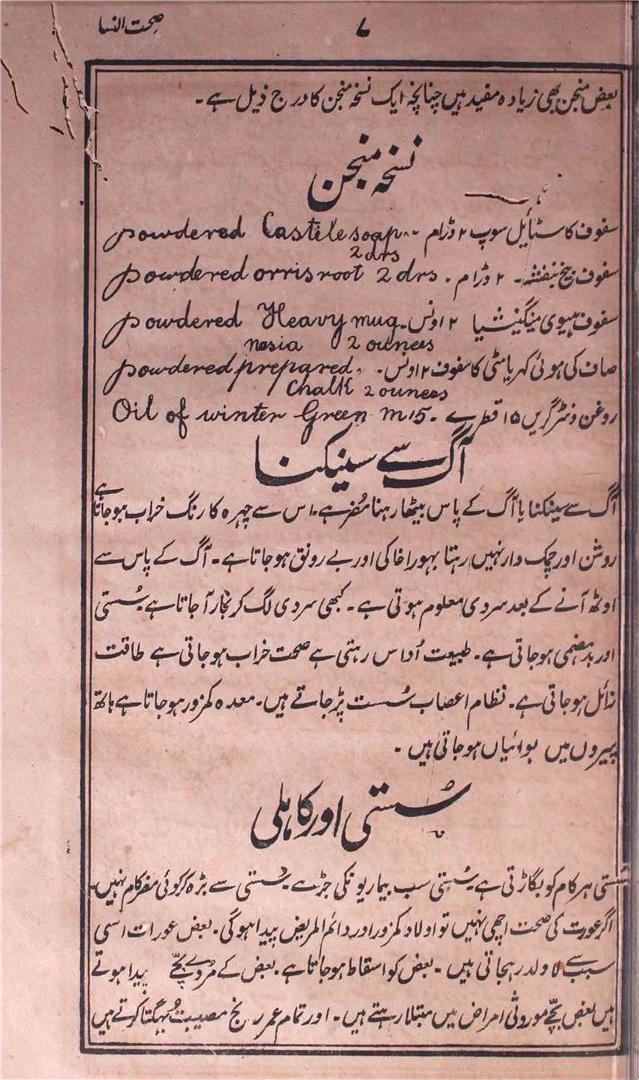 صحت النسا
۷
بعض منجن بھی زیادہ مفید ہیں چنانچہ ایک نسخہ منجن کا درج ذیل ہے۔
نسخہ منجن
سفوف کاسٹائیل سوپ ۲ ڈرام۔ powdered Castile soap..
2 drs
سفوف بیخ بنفشہ۔ ۲ ڈرام۔ powdered orris root 2 drs.
سفوف ہیوی میگنیشیا ۲ اونس۔ powdered Heavy mug
nesia 2 ounees
صاف کی ہوئی کھریا مٹی کا سفوف ۲ اونس۔ powdered prepared.
Chalk 2 ounees
روغن ونٹر گریں ۱۵ قطرے۔ Oil of winter Green m15.
آگ سے سینکنا
آگ سے سینکنا یا آگ کے پاس بیٹھا رہنا مُضر ہے۔ اس سے چہرہ کا رنگ خراب ہوجاتا ہے
روشن اور چمک دار نہیں رہتا بہورا خاکی اور بے رونق ہوجاتا ہے۔ آگ کے پاس سے
اوٹھ آنے کے بعد سردی معلوم ہوتی ہے۔ کبھی سردی لگ کر بخار آجاتا ہے سُستی
اور بدہضمی ہوجاتی ہے۔ طبیعت اُداس رہتی ہے صحت خراب ہوجاتی ہے طاقت
زائل ہوجاتی ہے۔ نظام اعصاب سُست پڑجاتے ہیں۔ معدہ کمزور ہوجاتا ہے ہاتھ
پیروں میں بوائیاں ہوجاتی ہیں۔
سُستی اور کاہلی
سُستی ہر کام کو بگاڑتی ہے سُستی سب بیماریونکی جڑ ہے سُستی سے بڑہ کر کوئی مضر کام نہیں۔
اگر عورت کی صحت اچھی نہیں تو اولاد کمزور اور دائم المریض پیدا ہوگی۔ بعض عورات اسی
سبب سے لاولد رہجاتی ہیں۔ بعض کو اسقاط ہوجاتا ہے۔ بعض کے مردے بچے پیدا ہوتے
ہیں بعض بچے موروثی امراض میں مبتلا رہتے ہیں۔ اور تمام عمر رنج مصیبت بُھگتا کرتے ہیں